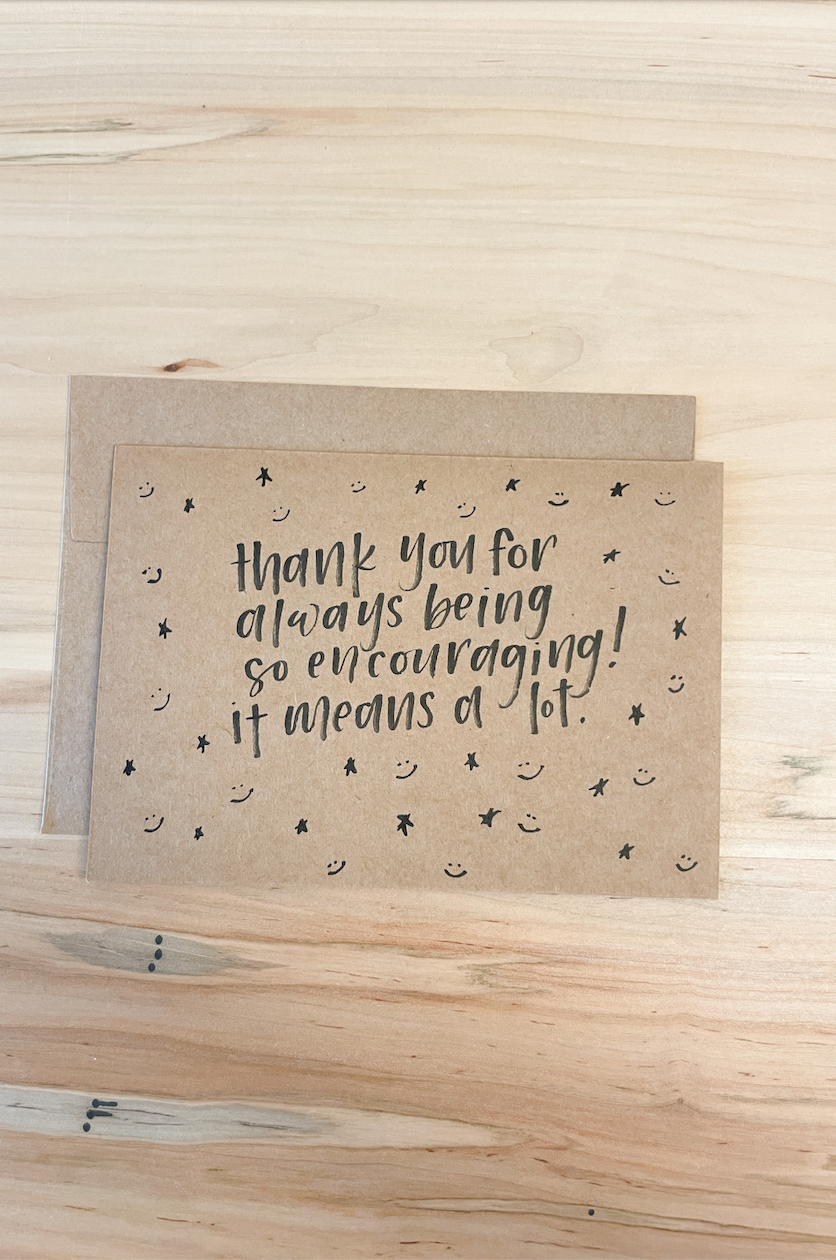 thank you for
always being
so encouraging!
it means a lot.